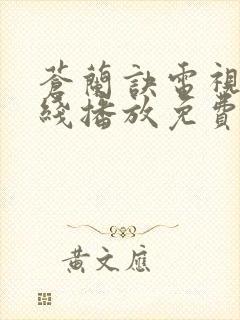 蒼蘭訣電視
綫播放免費
黃文應